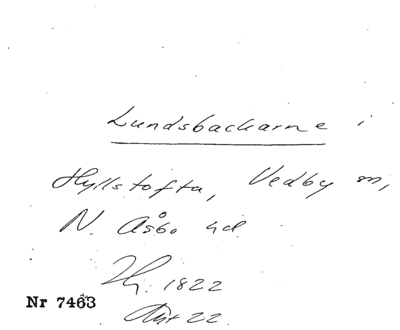 Lundsbackarne i
Hyllstofta, Vedby sn,
N. Åsbo hd
Hy. 1822
Nr 7463
Akt 22